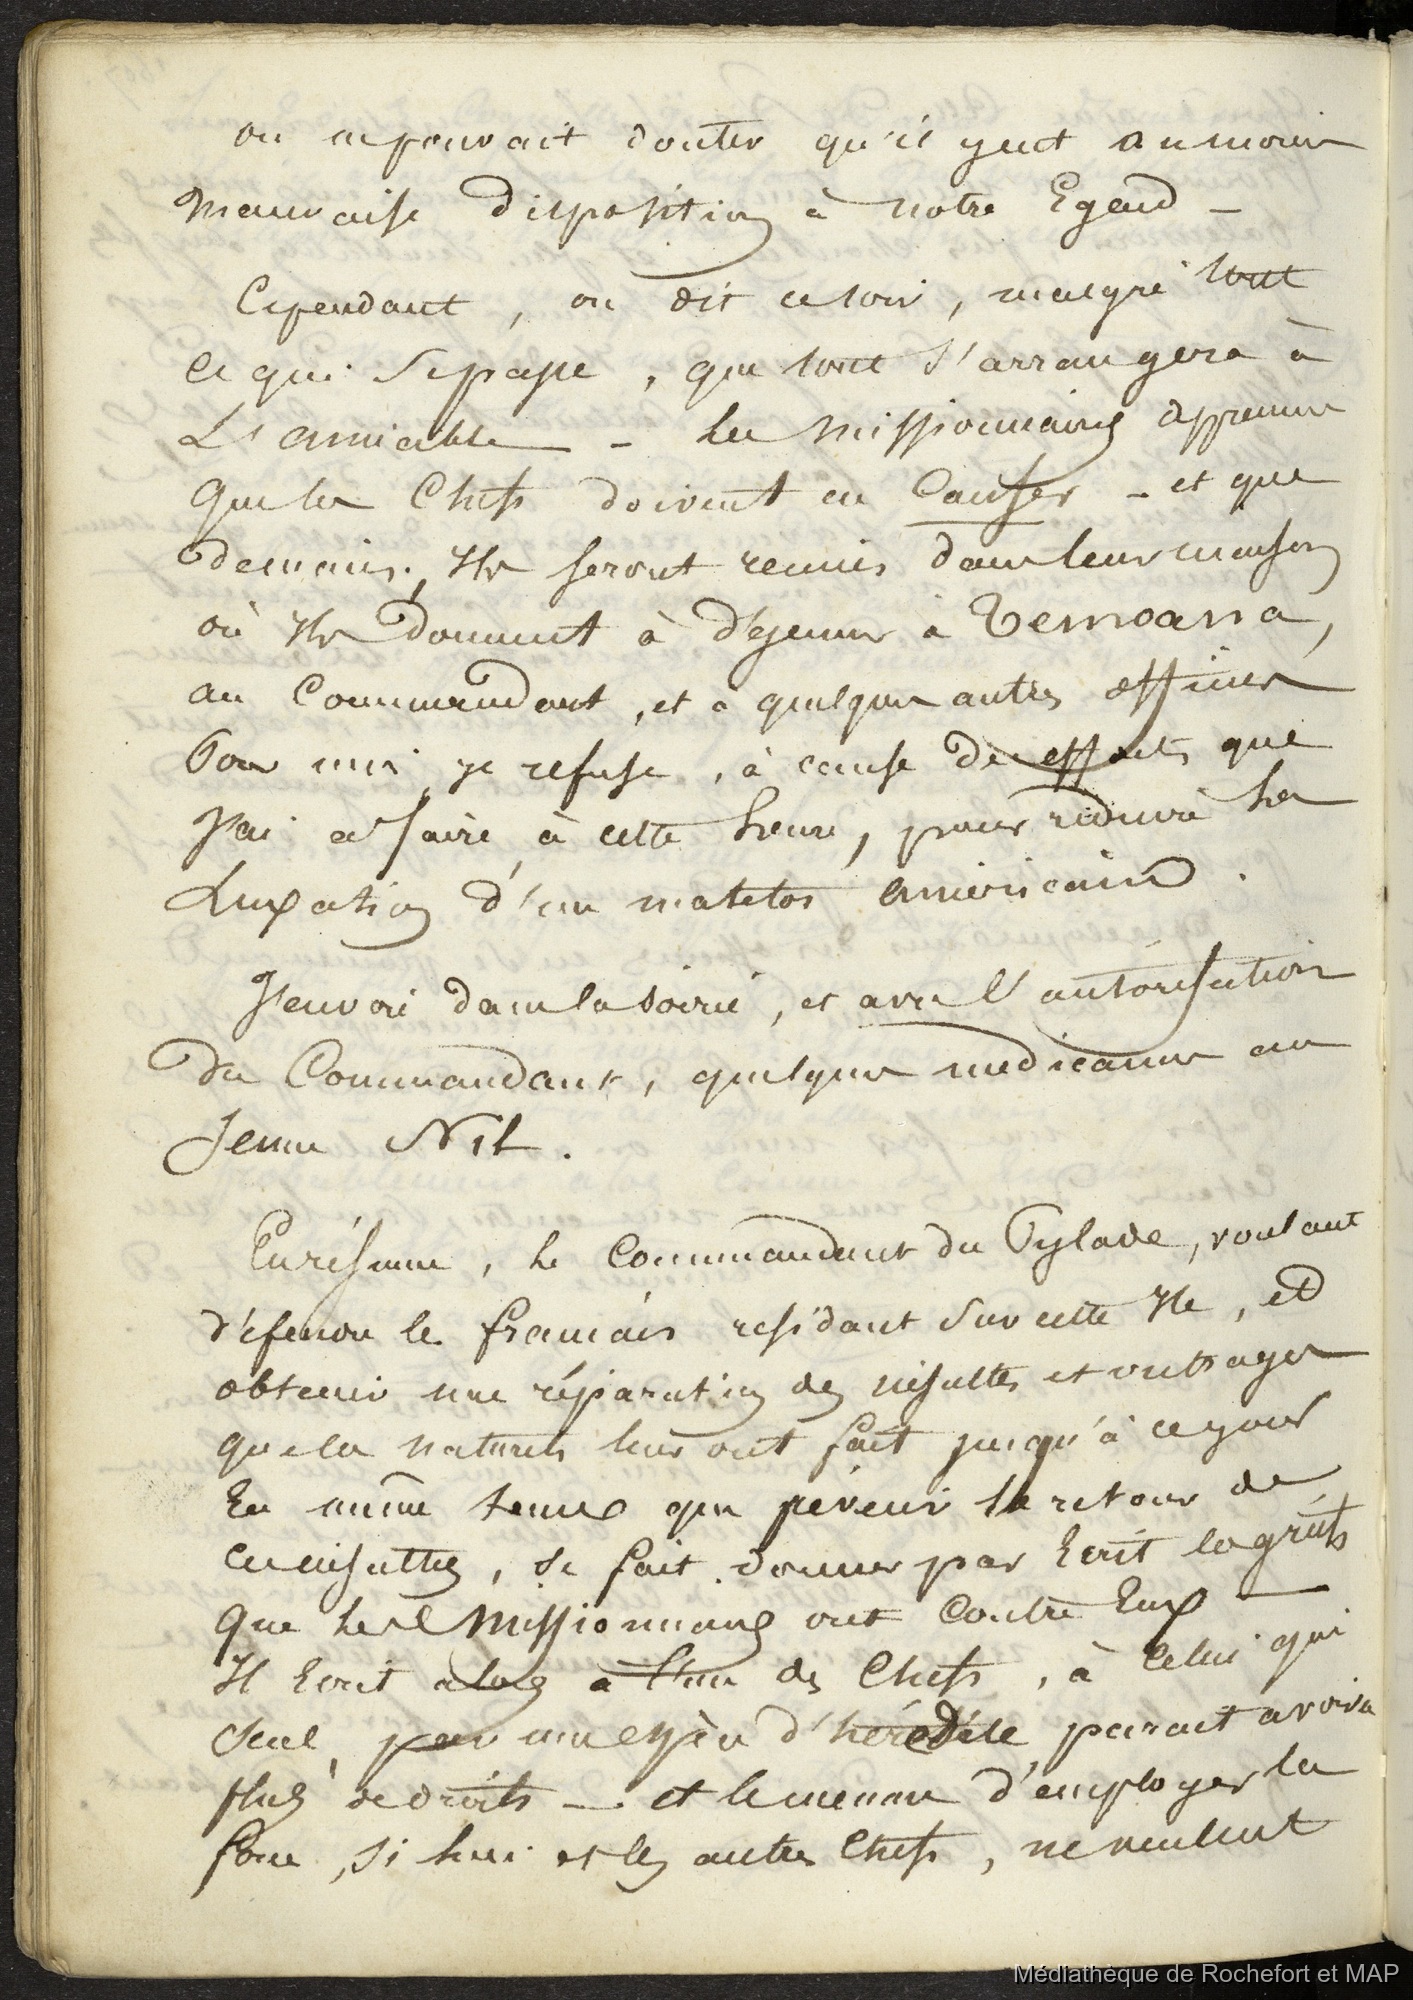 on ne pouvait douter qu'il y eut au moins
mauvaise disposition à notre Egard _
Cependant, on dit ce soir, malgré tout
ce qui se passe, que tout s'arrangera à
L'amiable _ Les Missionnaires apprennent
que les Chefs doivent en Causer _ et que
demain, ils seront reunis dans leur maison
où ils donnent à déjeuner à Temoana,
au Commandant, et à quelques autres officiers
Pour moi, je refuse, à cause des efforts que
j'ai à faire, à cette heure, pour réduire la
Luxation d'un matelot américain.
J'envoie dans la soirée, et avec l'autorisation
du Commandant, quelques medicamens au
Jeune Nil.
En résumé, le Commandant du Pylade, voulant
défendre les français résidant sur cette Ile, et
obtenir une réparation des insultes et outrages
que les naturels leur ont fait jusqu'à ce jour
En même tems que prévenir le retour de
ces insultes, se fait donner par Ecrit les griefs
que les Missionnaires ont Contre Eux _
Il Ecrit alors à l'un des Chefs, à Celui qui
seul, par une espèce d'hérédité, parait avoir
plus de droits _ et le menace d'employer la
force, si lui et les autres Chefs, ne veulent
Médiathèque de Rochefort et MAP